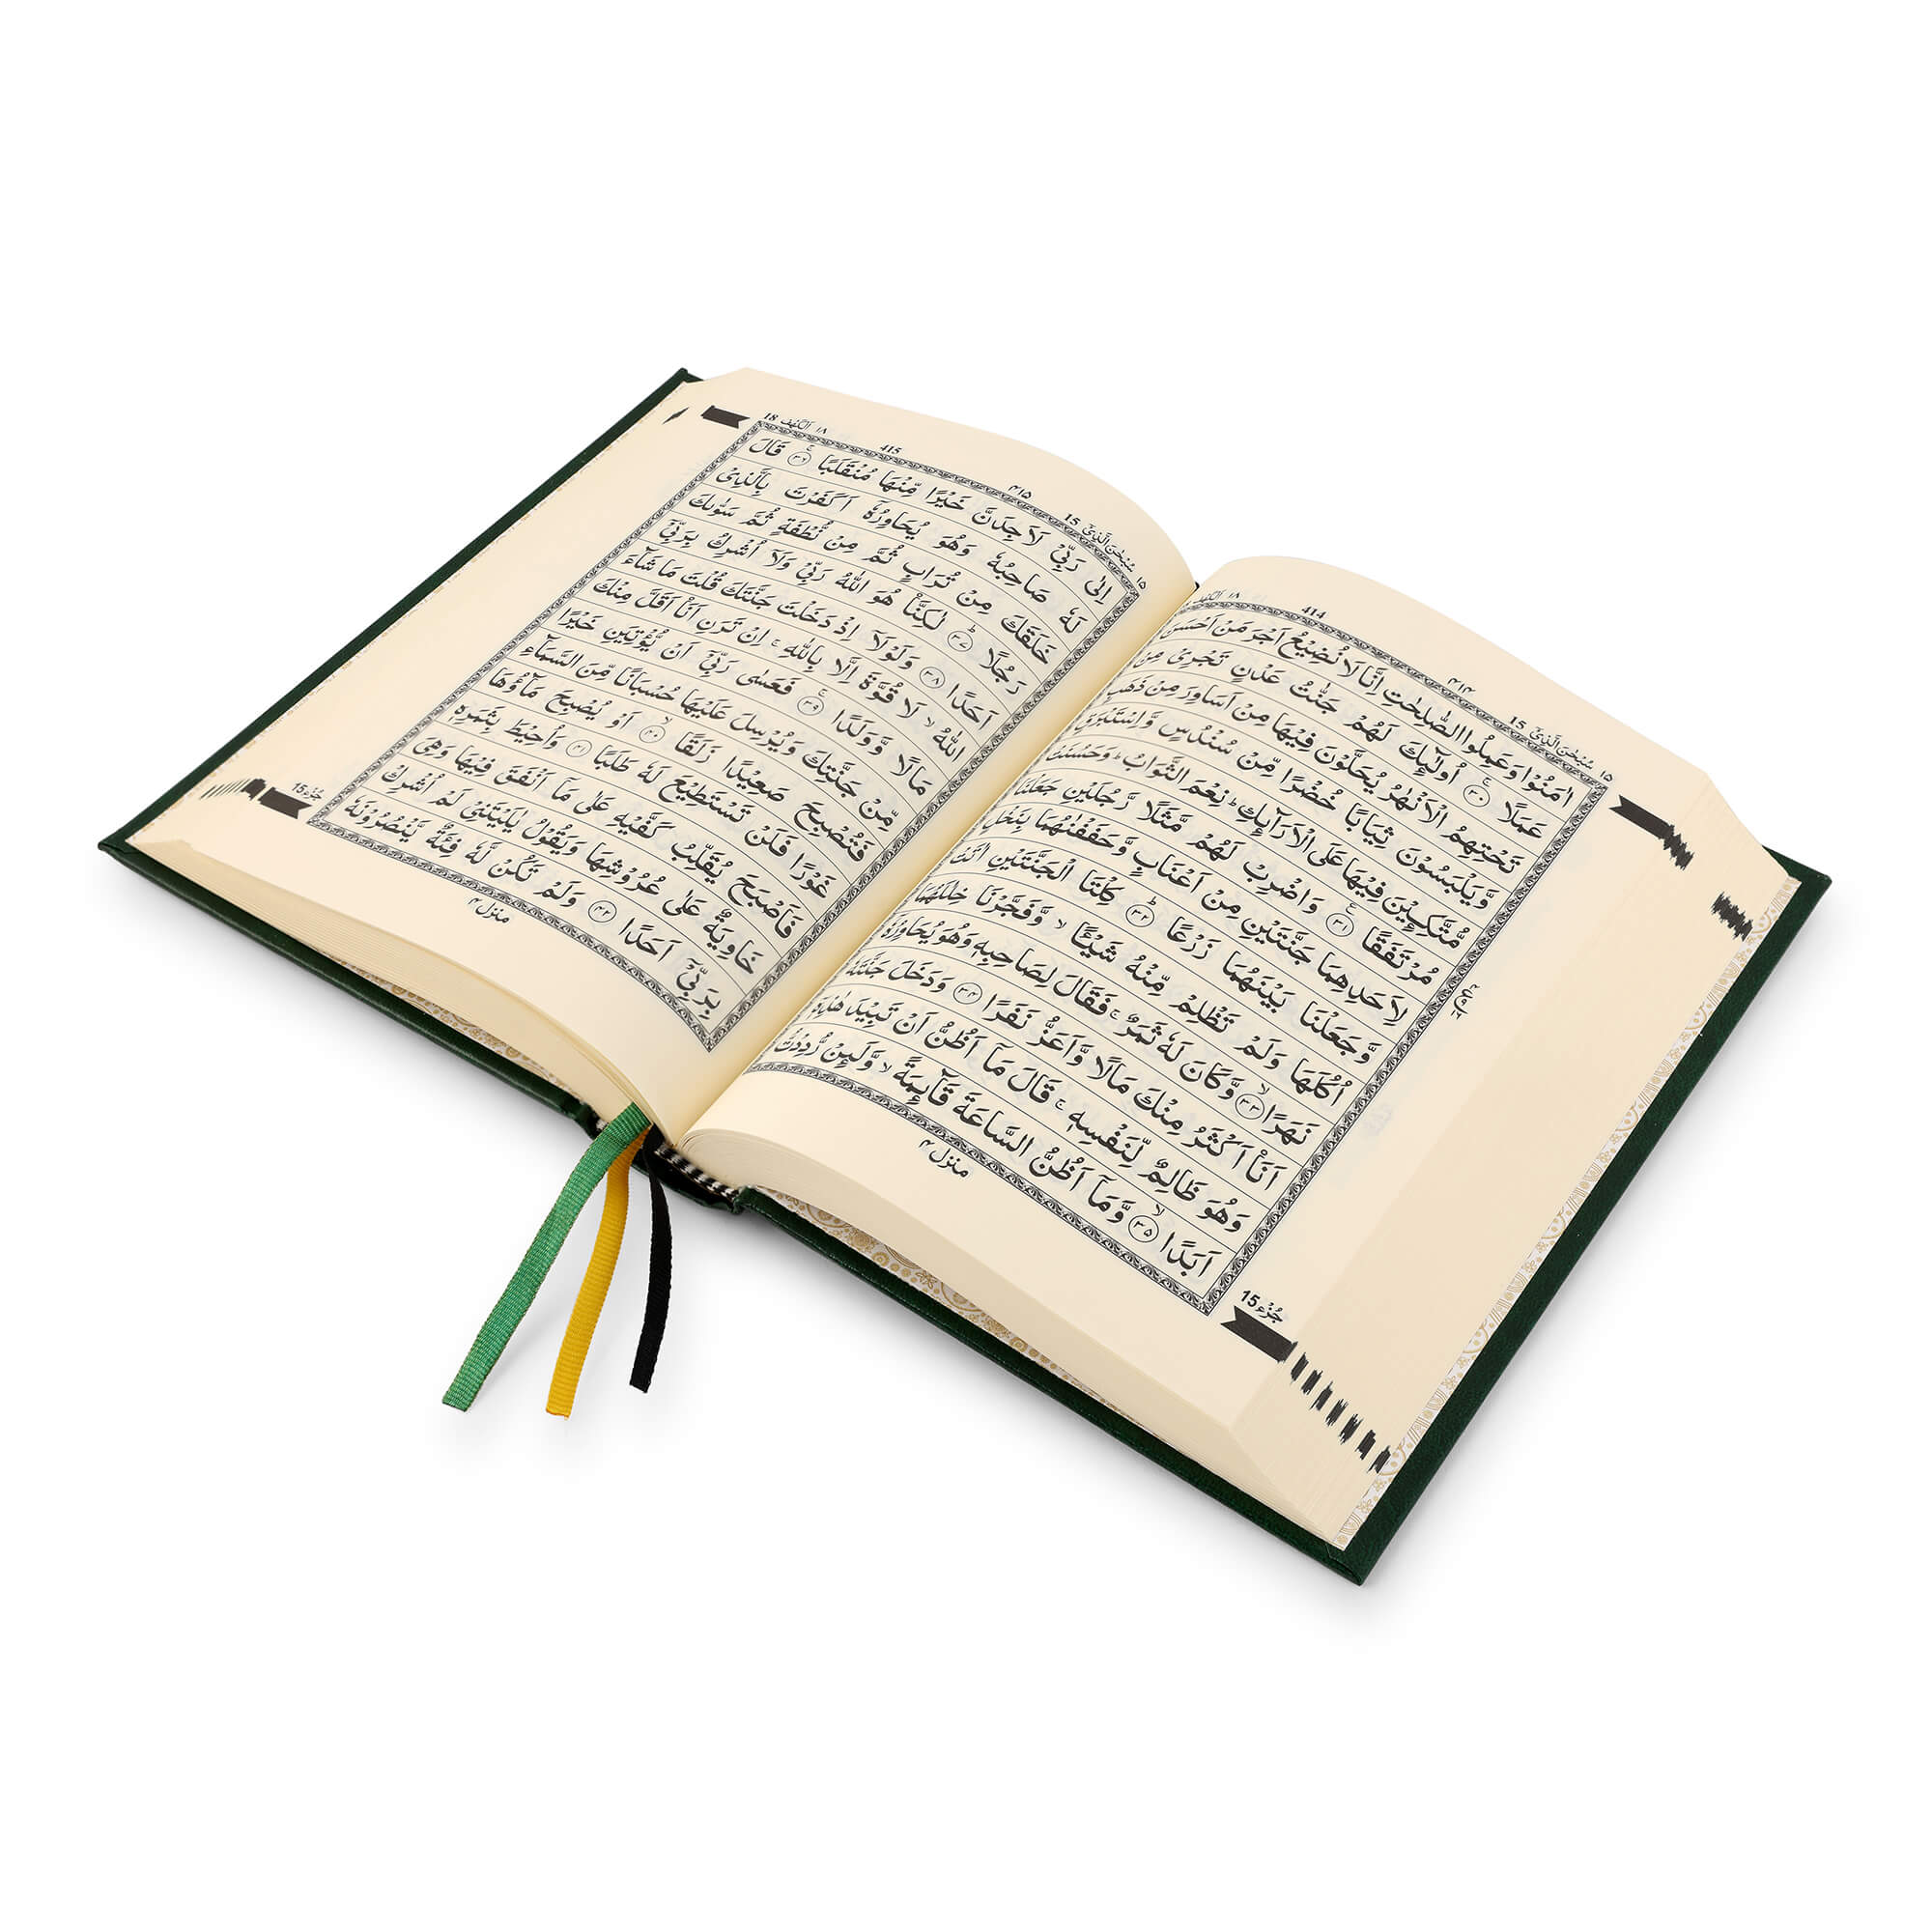 ١٥ سُبْحٰنَ الَّذِیْۤ 15 ٤١٤ 414 ١٨ اَلْكَهْف
اٰمَنُوْا وَعَمِلُوا الصّٰلِحٰتِ اِنَّا لَا نُضِیْعُ اَجْرَ مَنْ اَحْسَنَ
عَمَلًا ۚ ٣٠ اُولٰٓئِكَ لَهُمْ جَنّٰتُ عَدْنٍ تَجْرِیْ مِنْ
تَحْتِهِمُ الْاَنْهٰرُ یُحَلَّوْنَ فِیْهَا مِنْ اَسَاوِرَ مِنْ ذَهَبٍ
وَّیَلْبَسُوْنَ ثِیَابًا خُضْرًا مِّنْ سُنْدُسٍ وَّاِسْتَبْرَقٍ
مُّتَّكِـِٕیْنَ فِیْهَا عَلَی الْاَرَآىِٕكِ ؕ نِعْمَ الثَّوَابُ ؕ وَحَسُنَتْ
مُرْتَفَقًا ۠ ٣١ وَاضْرِبْ لَهُمْ مَّثَلًا رَّجُلَیْنِ جَعَلْنَا
لِاَحَدِهِمَا جَنَّتَیْنِ مِنْ اَعْنَابٍ وَّحَفَفْنٰهُمَا بِنَخْلٍ
وَّجَعَلْنَا بَیْنَهُمَا زَرْعًا ؕ ٣٢ كِلْتَا الْجَنَّتَیْنِ اٰتَتْ
اُكُلَهَا وَلَمْ تَظْلِمْ مِّنْهُ شَیْـًٔا ۙ وَّفَجَّرْنَا خِلٰلَهُمَا
نَهَرًا ۙ ٣٣ وَّكَانَ لَهٗ ثَمَرٌ ۚ فَقَالَ لِصَاحِبِهٖ وَهُوَ یُحَاوِرُهٗۤ
اَنَا اَكْثَرُ مِنْكَ مَالًا وَّاَعَزُّ نَفَرًا ٣٤ وَدَخَلَ جَنَّتَهٗ
وَهُوَ ظَالِمٌ لِّنَفْسِهٖ ۚ قَالَ مَاۤ اَظُنُّ اَنْ تَبِیْدَ هٰذِهٖۤ
اَبَدًا ۙ ٣٥ وَّمَاۤ اَظُنُّ السَّاعَةَ قَآىِٕمَةً ۙ وَّلَىِٕنْ رُّدِدْتُّ
منزل ٤
جُزْء 15
١٥ سُبْحٰنَ الَّذِیْۤ 15 ٤١٥ 415 ١٨ اَلْكَهْف 18
اِلٰی رَبِّیْ لَاَجِدَنَّ خَیْرًا مِّنْهَا مُنْقَلَبًا ۚ ٣٦ قَالَ
لَهٗ صَاحِبُهٗ وَهُوَ یُحَاوِرُهٗۤ اَكَفَرْتَ بِالَّذِیْ
خَلَقَكَ مِنْ تُرَابٍ ثُمَّ مِنْ نُّطْفَةٍ ثُمَّ سَوّٰىكَ
رَجُلًا ؕ ٣٧ لٰكِنَّا۠ هُوَ اللّٰهُ رَبِّیْ وَلَاۤ اُشْرِكُ بِرَبِّیْۤ
اَحَدًا ٣٨ وَلَوْلَاۤ اِذْ دَخَلْتَ جَنَّتَكَ قُلْتَ مَا شَآءَ
اللّٰهُ ۙ لَا قُوَّةَ اِلَّا بِاللّٰهِ ۚ اِنْ تَرَنِ اَنَا اَقَلَّ مِنْكَ
مَالًا وَّوَلَدًا ۚ ٣٩ فَعَسٰی رَبِّیْۤ اَنْ یُّؤْتِیَنِ خَیْرًا
مِّنْ جَنَّتِكَ وَیُرْسِلَ عَلَیْهَا حُسْبَانًا مِّنَ السَّمَآءِ
فَتُصْبِحَ صَعِیْدًا زَلَقًا ۙ ٤٠ اَوْ یُصْبِحَ مَآؤُهَا
غَوْرًا فَلَنْ تَسْتَطِیْعَ لَهٗ طَلَبًا ٤١ وَاُحِیْطَ بِثَمَرِهٖ
فَاَصْبَحَ یُقَلِّبُ كَفَّیْهِ عَلٰی مَاۤ اَنْفَقَ فِیْهَا وَهِیَ
خَاوِیَةٌ عَلٰی عُرُوْشِهَا وَیَقُوْلُ یٰلَیْتَنِیْ لَمْ اُشْرِكْ
بِرَبِّیْۤ اَحَدًا ٤٢ وَلَمْ تَكُنْ لَّهٗ فِئَةٌ یَّنْصُرُوْنَهٗ
منزل ٤
جُزْء 15